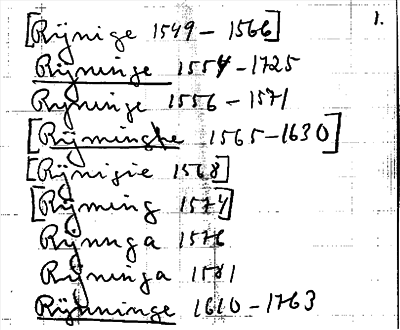 1.
[Rÿnige 1549 – 1566]
Rÿninge 1554 – 1725
Ryninge 1556 – 1571
[Rÿminghe 1565 – 1630]
[Rÿnigie 1568]
[Rÿming 1574]
Rÿnnga 1576
Rÿninga 1581
Rÿnninge 1610 – 1763